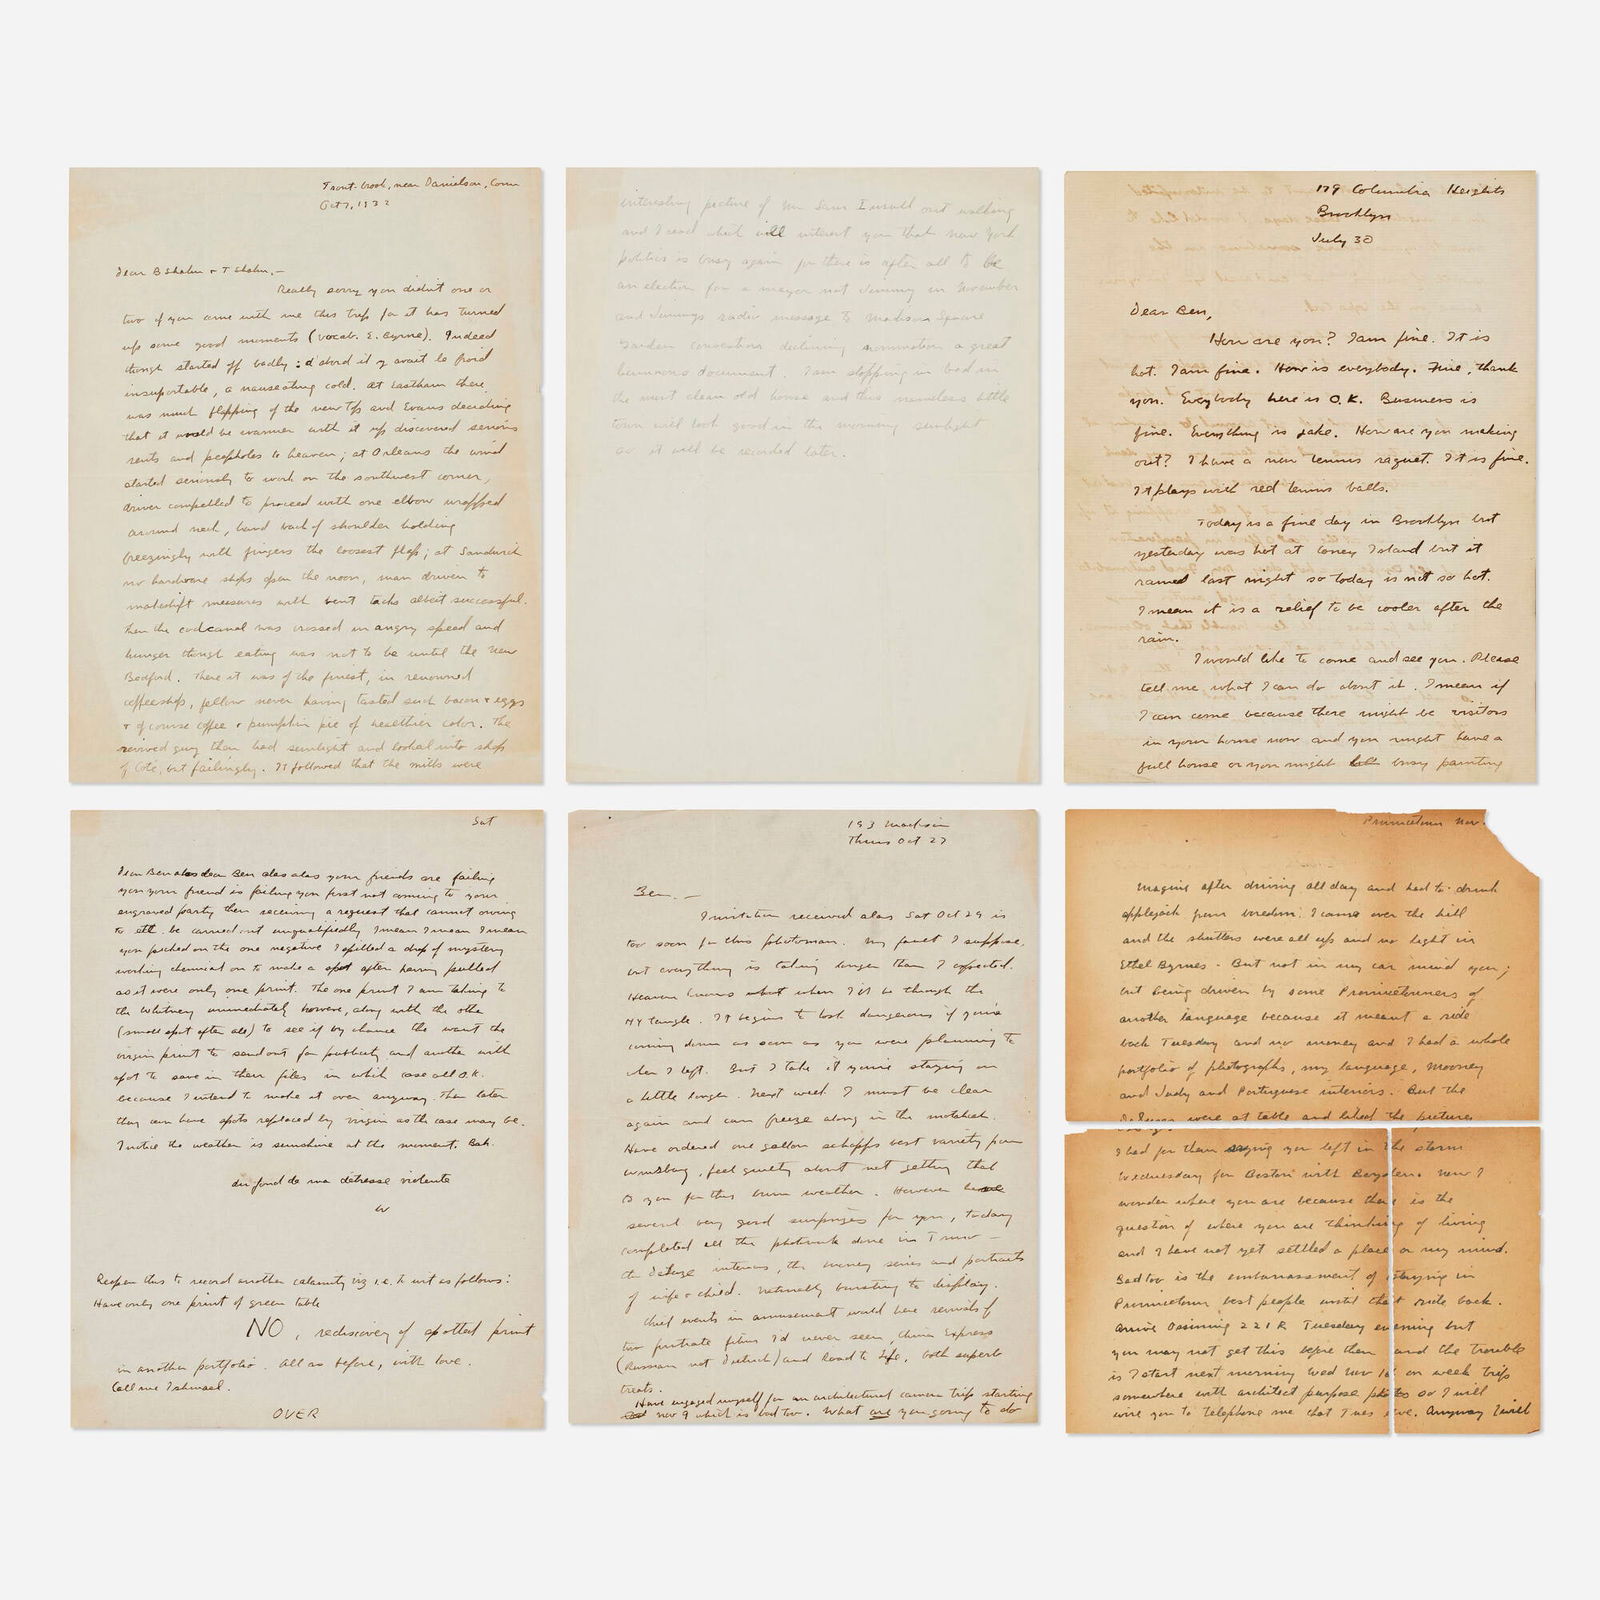 Trout-brook, near Danielson, Conn
Oct 7, 1932
Dear B Shahn + T Shahn,—
Really sorry you didn't one or
two of you come with me this trip for it has turned
up some good moments (vocab. E. Byrne). Indeed
though started off badly: d'abord il y avait le froid
insupportable, a nauseating cold. At Eastham there
was much flapping of the new top and Evans deciding
that it would be warmer with it up discovered serious
rents and peepholes to heaven; at Orleans the wind
started seriously to work on the southwest corner,
driver compelled to proceed with one elbow wrapped
around neck, hand back of shoulder holding
freezingly with fingers the loosest flap; at Sandwich
no hardware shops open the noon, man driven to
makeshift measures with bent tacks albeit successful.
Then the cod canal was crossed in angry speed and
hunger though eating was not to be until the New
Bedford. There it was of the finest, in renowned
coffeeshop, fellow never having tasted such bacon + eggs
+ of course coffee + pumpkin pie of healthier color. The
revived guy then had sunlight and looked into shop
of Cote, but failingly. It followed that the mills were
interesting picture of Mr Sam I would out walking
and I read which will interest you that New York
politics is busy again for there is after all to be
an election for a mayor not Jimmy in November
and Jimmys radio message to Madison Square
Garden convention declining nomination a great
humorous document. I am stopping in bed in
the most clean old house and this nameless little
town will look good in the morning sunlight
so it will be recorded later.
179 Columbia Heights
Brooklyn
July 30
Dear Ben,
How are you? I am fine. It is
hot. I am fine. How is everybody. Fine, thank
you. Everybody here is O.K. Business is
fine. Everything is jake. How are you making
out? I have a new tennis raquet. It is fine.
It plays with red tennis balls.
Today is a fine day in Brooklyn but
yesterday was hot at Coney Island but it
rained last night so today is not so hot.
I mean it is a relief to be cooler after the
rain.
I would like to come and see you. Please
tell me what I can do about it. I mean if
I can come because there might be visitors
in your house now and you might have a
full house or you might be busy painting
Sat
Dear Ben alas dear Ben alas alas your friends are failing
you your friend is failing you first not coming to your
engraved party then receiving a request that cannot owing
to etc. be carried out unqualifiedly I mean I mean I mean
you picked on the one negative I spilled a drop of mystery
working chemical on to make a spot after having pulled
as it were only one print. The one print I am taking to
the Whitney immediately however, along with the othe
(small spot after all) to see if by chance the want the
virgin print to send out for publicity and another with
spot to save in their files in which case all O.K.
because I intend to make it over anyway. Then later
they can have spots replaced by virgin as the case may be.
I notice the weather is sunshine at the moment. Bah.
du fond de ma détresse violente
W
Reopen this to record another calamity viz i.e. to wit as follows:
Have only one print of green table
NO, rediscovery of spotted print
in another portfolio. All as before, with love.
Call me Ishmael.
OVER
193 Madison
Thurs Oct 27
Ben.—
Invitation received alas Sat Oct 29 is
too soon for this photoman. My fault I suppose.
but everything is taking longer than I expected.
Heaven knows what when I'll be through the
NY tangle. It begins to look dangerous if you're
coming down as soon as you were planning to
when I left. But I take it you're staying on
a little longer. Next week I must be clear
again and can freeze along in the
Have ordered one gallon schapps best variety from
feel guilty about not getting that
to you for this brum weather. However
several very good surprizes for you, today
completed all the photowork done in Truro —
the DeLuze interiors, the Mooney series and portraits
of wife + child. Naturally bursting to display.
Chief events in amusement world here revivals of
two first rate films I'd never seen, China Express
(Russian not Dietrich) and Road to Life, both superb
treats.
Have engaged myself for an architectural camera trip starting
Nov 9 which is bad too. What are you going to do
Provincetown Nov.
Imagine after driving all day and had to drink
applejack from boredom, I came over the hill
and the shutters were all up and no light in
Ethel Byrnes. But not in my car mind you;
but being driven by some Provincetowners of
another language because it meant a ride
back Tuesday and no money and I had a whole
portfolio of photographs, my language, Mooney
and Judy and Portuguese interiors. But the
DeLuzes were at table and liked the pictures
I had for them saying you left in the storm
Wednesday for Boston with Now I
wonder where you are because there is the
question of where you are thinking of living
and I have not yet settled a place or my mind.
Bad too is the embarrassment of staying in
Provincetown best people until that ride back.
Arrive Ossining 221 R Tuesday evening but
you may not get this before then and the trouble
is I start next morning Wed Nov on week trip
somewhere with architect purpose photos so I will
wire you to telephone me that Tues eve. Anyway I will